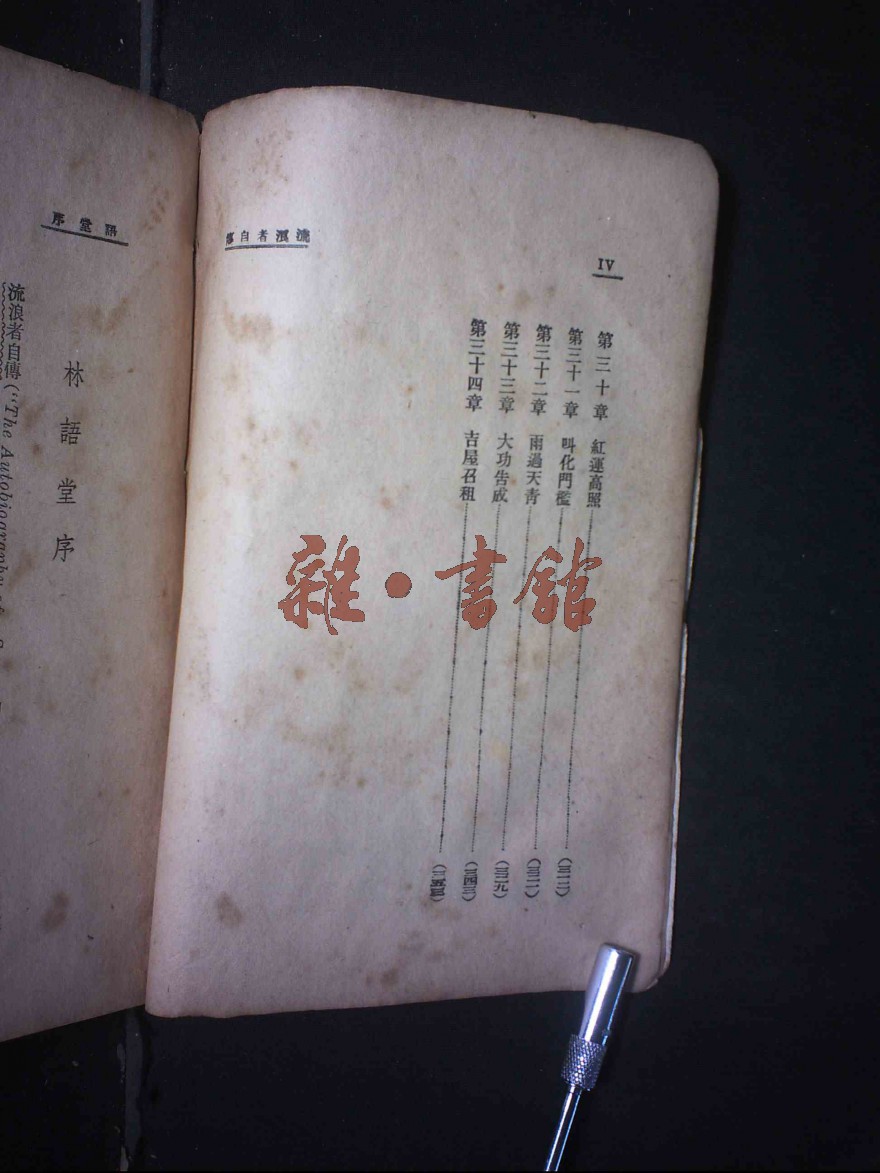 IV
流浪者自傳
第三十章 紅運高照……(三一二)
第三十一章 叫化門檻……(三二一)
第三十二章 雨過天青……(三二九)
第三十三章 大功告成……(三四三)
第三十四章 吉屋召租……(三五三)
語堂序
林語堂序
流浪者自傳("The Autobiography of a
雜·書館